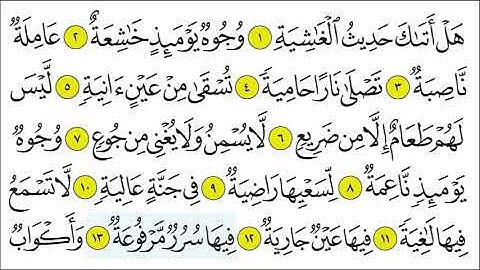 هَلْ أَتَىٰكَ حَدِيثُ ٱلْغَٰشِيَةِ ١ وُجُوهٌ يَوْمَئِذٍ خَٰشِعَةٌ ٢ عَامِلَةٌ
نَّاصِبَةٌ ٣ تَصْلَىٰ نَارًا حَامِيَةً ٤ تُسْقَىٰ مِنْ عَيْنٍ ءَانِيَةٍ ٥ لَّيْسَ
لَهُمْ طَعَامٌ إِلَّا مِن ضَرِيعٍ ٦ لَّا يُسْمِنُ وَلَا يُغْنِى مِن جُوعٍ ٧ وُجُوهٌ
يَوْمَئِذٍ نَّاعِمَةٌ ٨ لِّسَعْيِهَا رَاضِيَةٌ ٩ فِى جَنَّةٍ عَالِيَةٍ ١٠ لَّا تَسْمَعُ
فِيهَا لَٰغِيَةً ١١ فِيهَا عَيْنٌ جَارِيَةٌ ١٢ فِيهَا سُرُرٌ مَّرْفُوعَةٌ ١٣ وَأَكْوَابٌ